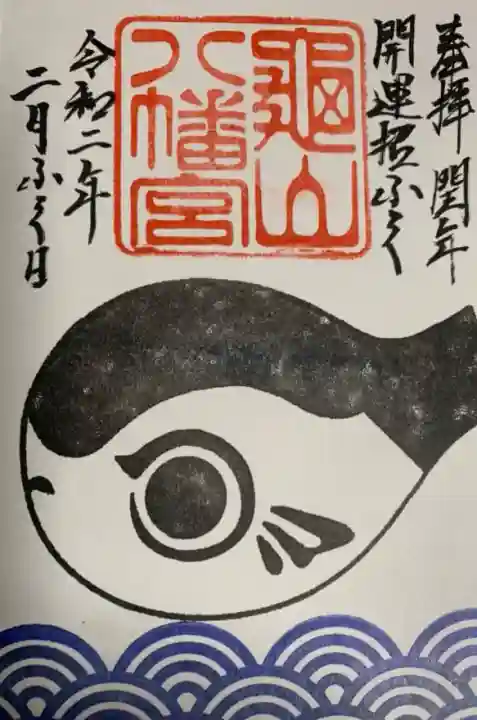 奉拝 閏年
開運招ふく
龜山
八幡宮
令和二年
二月ふく日